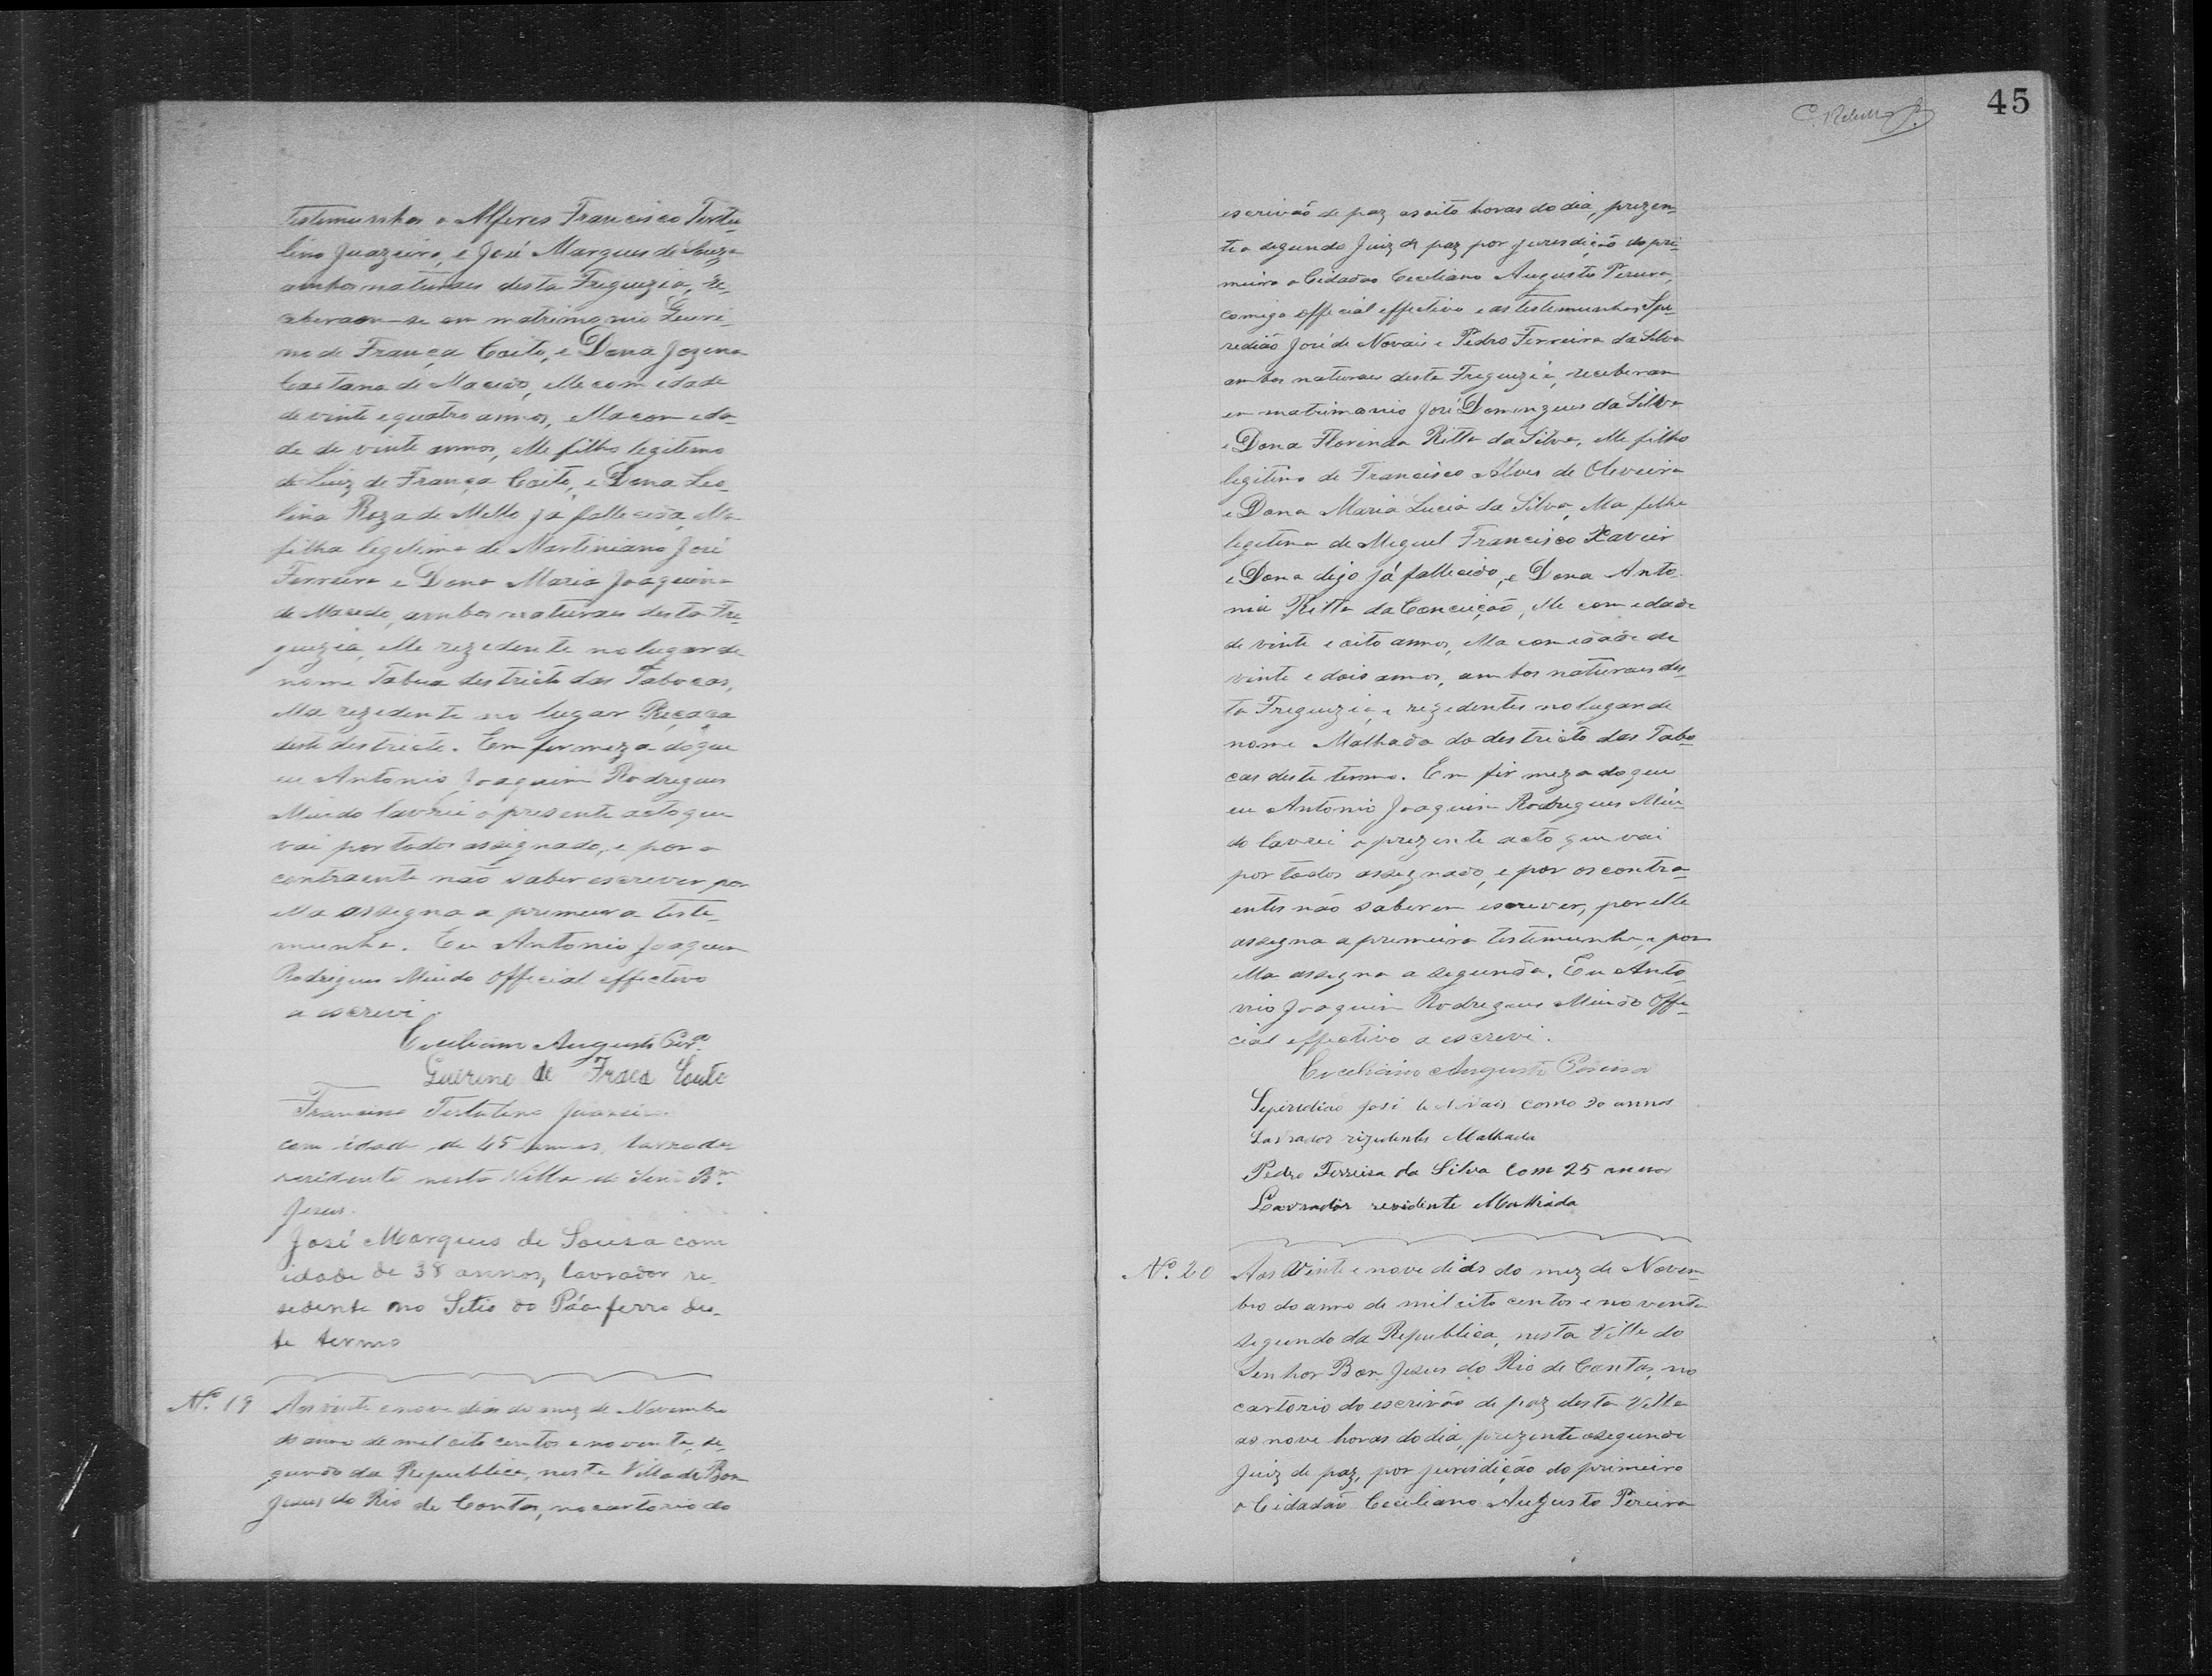 testemunhas o Alferes Francisco Tertu-
lino Juazeiro, e José Marques de Souza
ambos naturaes desta Freguezia, re-
ceberaom-se em matrimonio Gueri-
no de França Coito, e Dona Jozena
Caetana de Macêdo, elle com idade
de vinte e quatro annos, ella com eda-
de de vinte annos, elle filho legitimo
de Luiz de França Coito, e Dona Leo-
lina Roza de Mello já fallecida, ella
filha legitima de Martiniano José
Ferreira e Dona Maria Joaquina
de Macedo, ambos naturaes desta Fre-
guezia, elle rezedente no lugar de
nome Tabua destricto das Tabocas,
ella rezedente no lugar Reçaca
deste destricto. Em firmeza do que
eu Antonio Joaquim Rodrigues
Mindo lavrei o presente acto que
vai por todos assignado, e por a
contraente não saber escrever por
ella assigna a primeira teste-
munha. Eu Antonio Joaquim
Rodrigues Mindo Official effectivo
a escrevi.
Ceciliano Augusto Per.ª
Guerino de Frasa Couto
Francisco Tertulino Juazeiro
com idade de 45 annos, lavrador
residente nesta Villa do Senr. Bm.
Jesus.
José Marques de Sousa com
idade de 38 annos, lavrador re-
sedente no Setio do Páo ferro des-
te termo
Nº. 19 Aos vinte e nove dias do mez de Novembro
do anno de mil oito centos e noventa, se-
gundo da Republica, nesta Villa de Bom
Jesus do Rio de Contas, no cartorio do
45
escrivão de paz as oito horas do dia, prezen-
te o segundo Juiz de paz por jurisdição do pri-
meiro o Cidadão Ceciliano Augusto Pereira,
comigo official effectivo e as testemunhas Spi-
redião José de Novais e Pedro Ferreira da Silva
ambos naturaes desta Freguezia, receberam
em matrimonio José Domingues da Silva
e Dona Florinda Ritta da Silva, elle filho
legitimo de Francisco Alves de Oliveira
e Dona Maria Lucia da Silva, ella filha
legitima de Miguel Francisco Xavier
e Dona digo já fallecido, e Dona Anto-
nia Ritta da Conceição, elle com edade
de vinte e oito annos, ella com edade de
vinte e dois annos, ambos naturaes des-
ta Freguezia, e rezedentes no lugar de
nome Malhada do destricto das Tabo-
cas deste termo. Em firmeza do que
eu Antonio Joaquim Rodrigues Min-
do lavrei o prezente acto que vai
por todos assegnado, e por os contra-
entes não saberem escrever, por elle
assegna a primeira testemunha e por
ella assegna a segunda. Eu Anto-
nio Joaquim Rodrigues Mindo Offi-
cial effectivo a escrevi.
Ceciliano Augusto Pereira
Spiredião José de Novais com 30 annos
Lavrador rizidentes Malhada
Pedro Ferreira da Silva com 25 annos
Lavrador residente Malhada
Nº. 20 Aos vinte e nove dias do mez de Novem-
bro do anno de mil oito centos e noventa
segundo da Republica, nesta Villa do
Senhor Bom Jesus do Rio de Contas, no
cartorio do escrivão de paz desta Villa
as nove horas do dia, prezente o segundo
Juiz de paz, por jurisdição do primeiro
o Cidadão Ceciliano Augusto Pereira